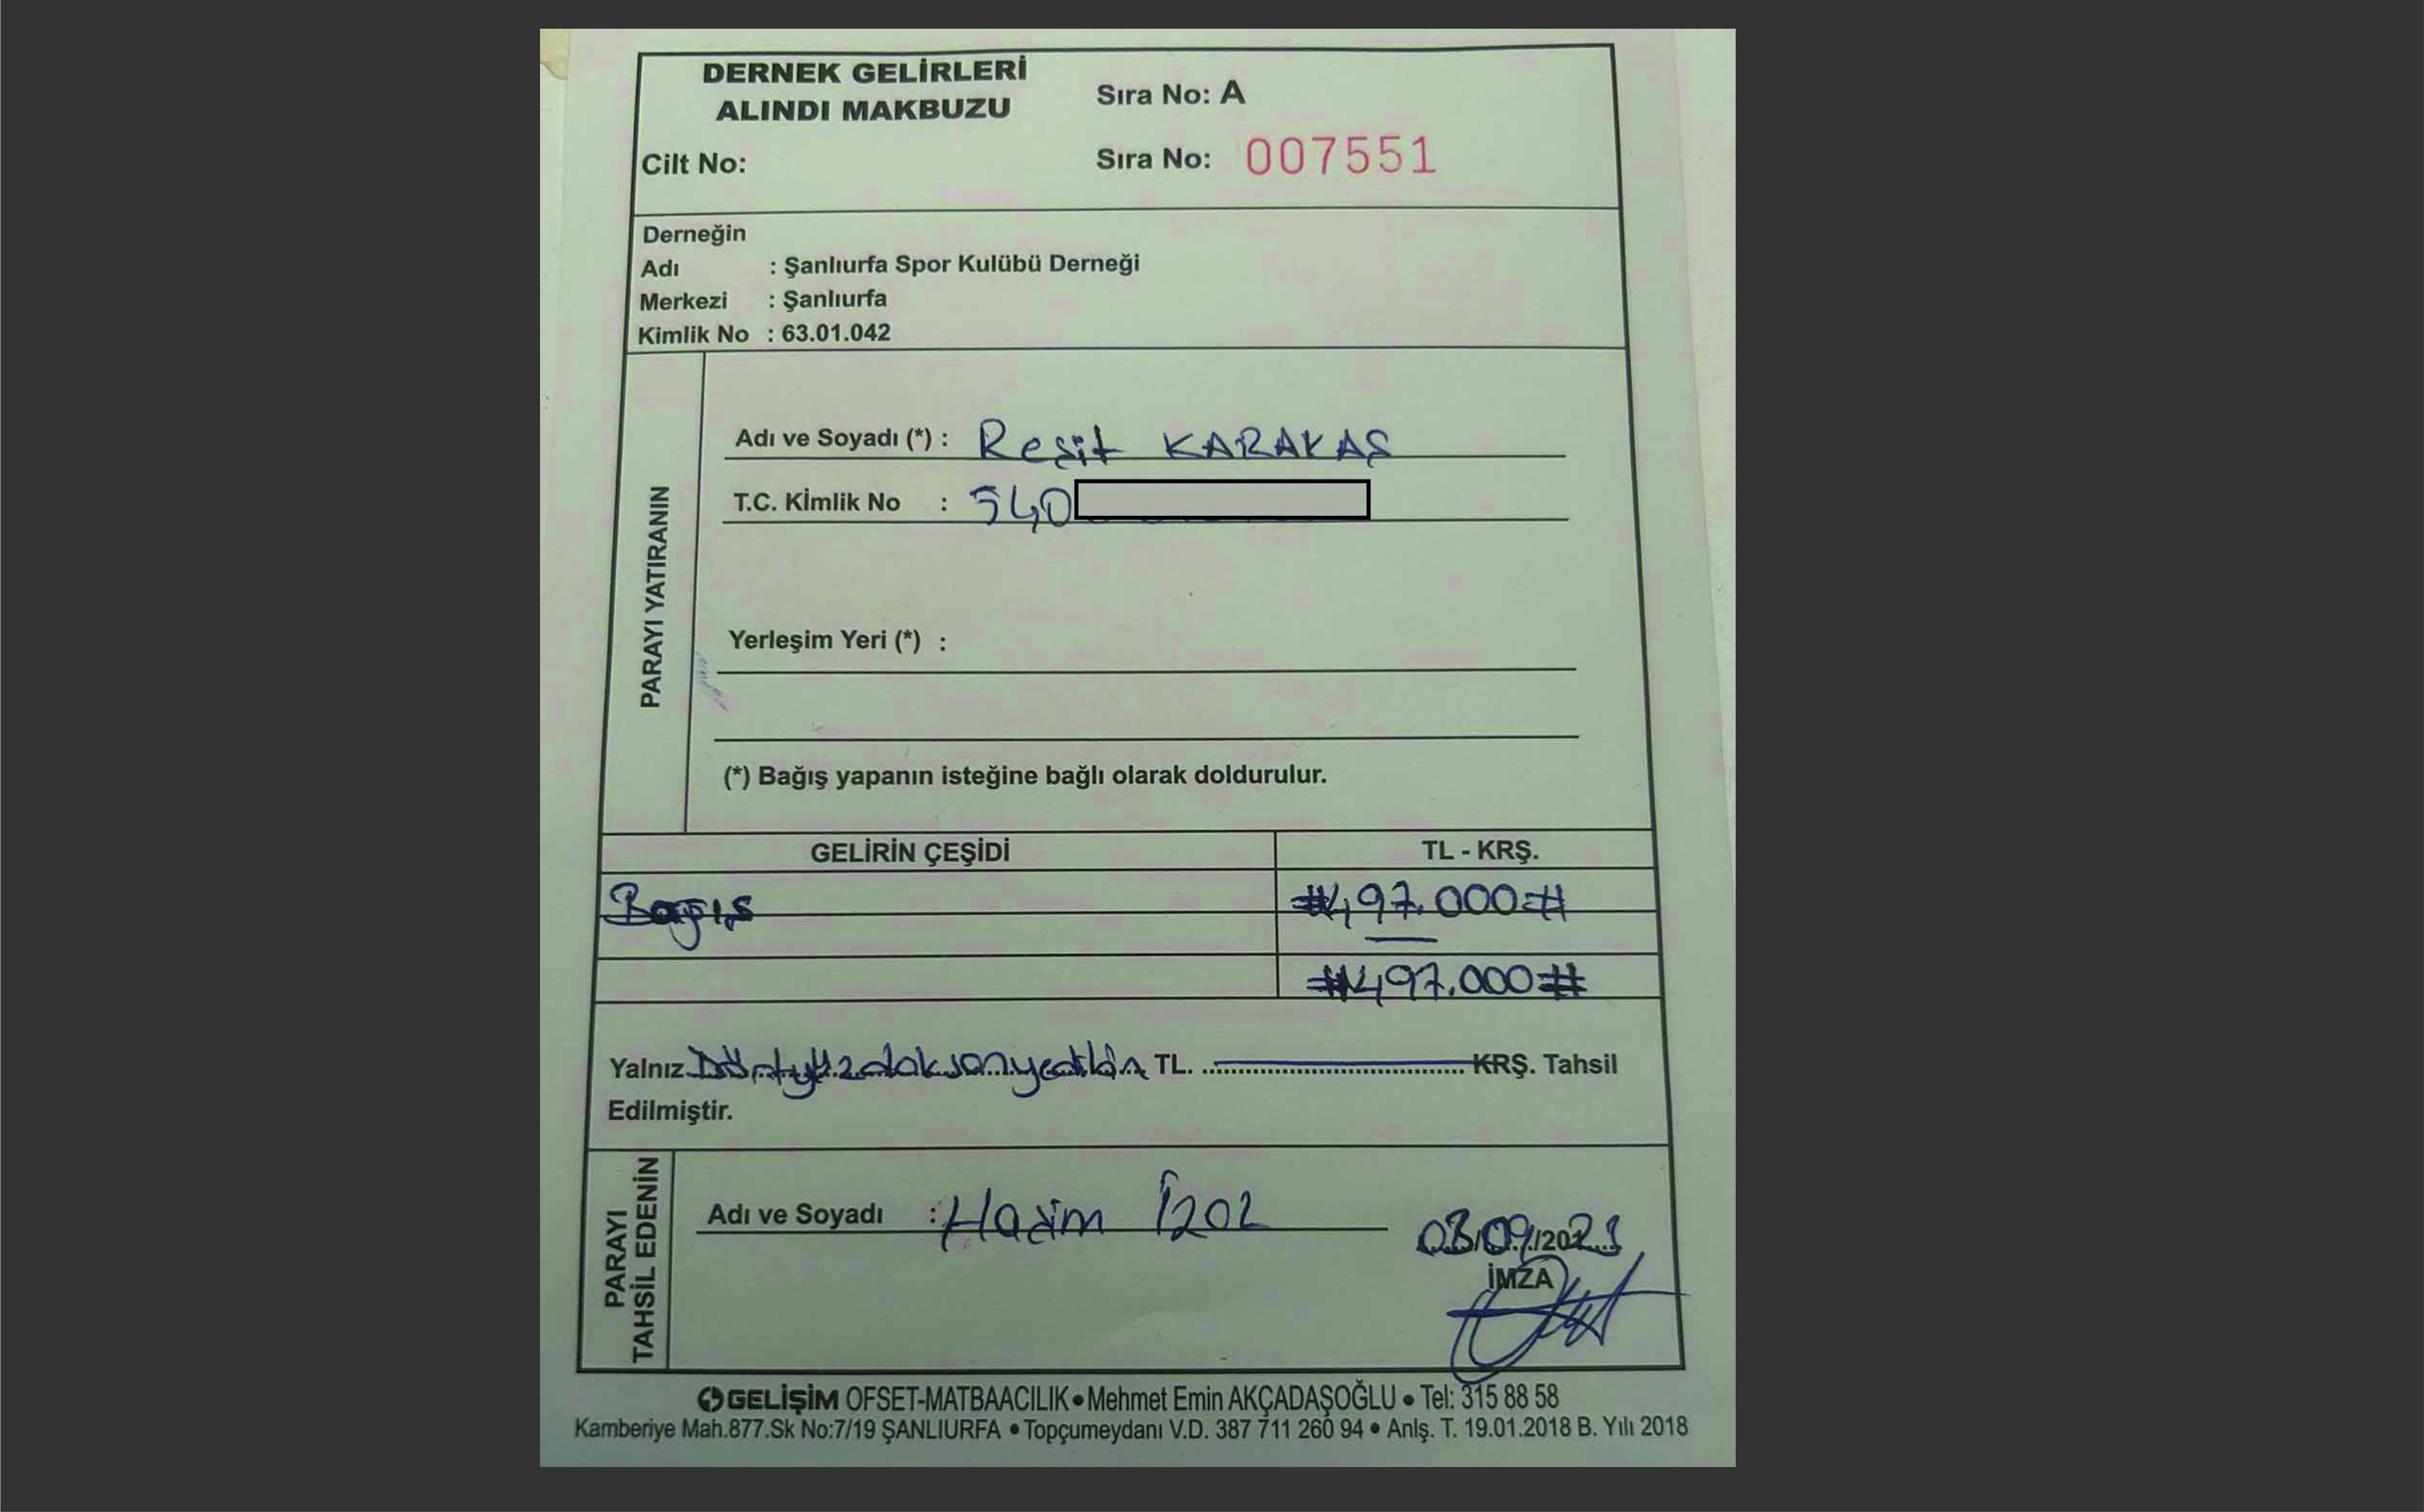 DERNEK GELİRLERİ
ALINDI MAKBUZU
Sıra No: A
Cilt No:
Sıra No: 007551
Derneğin
Adı : Şanlıurfa Spor Kulübü Derneği
Merkezi : Şanlıurfa
Kimlik No : 63.01.042
PARAYI YATIRANIN
Adı ve Soyadı (*) : Reşit KARAKAŞ
T.C. Kİmlik No : 540
Yerleşim Yeri (*) :
(*) Bağış yapanın isteğine bağlı olarak doldurulur.
GELİRİN ÇEŞİDİ TL - KRŞ.
Bağış #497.000#
#497.000#
Yalnız Dörtyüzdoksanyedibin TL. KRŞ. Tahsil
Edilmiştir.
PARAYI
TAHSİL EDENİN
Adı ve Soyadı : Haşim İzol
03/09/2021
İMZA
GELİŞİM OFSET-MATBAACILIK • Mehmet Emin AKÇADAŞOĞLU • Tel: 315 88 58
Kamberiye Mah.877.Sk No:7/19 ŞANLIURFA • Topçumeydanı V.D. 387 711 260 94 • Anlş. T. 19.01.2018 B. Yılı 2018